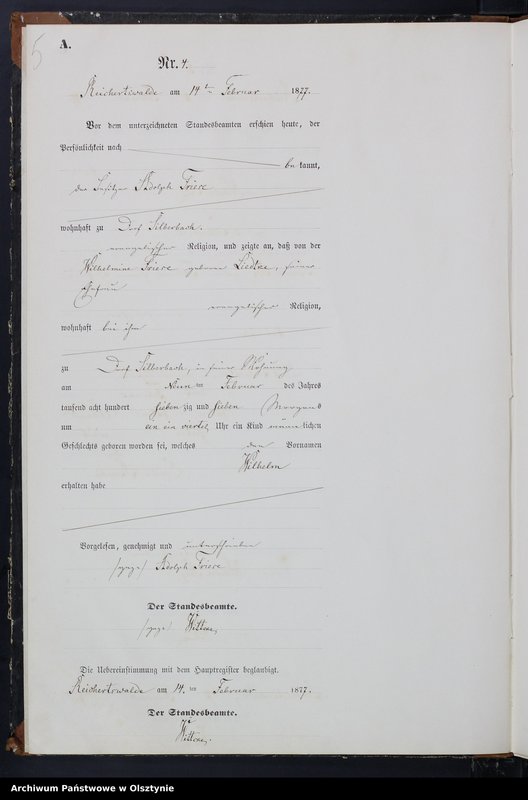 5
A.
Nr. 4.
Reichertswalde am 14ten Februar 1877.
Vor dem unterzeichneten Standesbeamten erschien heute, der
Persönlichkeit nach
bekannt,
der Besitzer Adolph Friese
wohnhaft zu Dorf Silberbach.
evangelischer Religion, und zeigte an, daß von der
Wilhelmine Friese geborene Liedtke, seiner
Ehefrau
evangelischer Religion,
wohnhaft bei ihm
zu Dorf Silberbach, in seiner Wohnung
am Neunten Februar des Jahres
tausend acht hundert siebenzig und sieben Morgens
um ein ein viertel Uhr ein Kind männlichen
Geschlechts geboren worden sei, welches den Vornamen
Wilhelm
erhalten habe
Vorgelesen, genehmigt und unterschrieben
(gez.) Adolph Friese
Der Standesbeamte.
(gez.)
Die Uebereinstimmung mit dem Hauptregister beglaubigt.
Reichertswalde am 14.ten Februar 1877.
Der Standesbeamte.
Archiwum Państwowe w Olsztynie